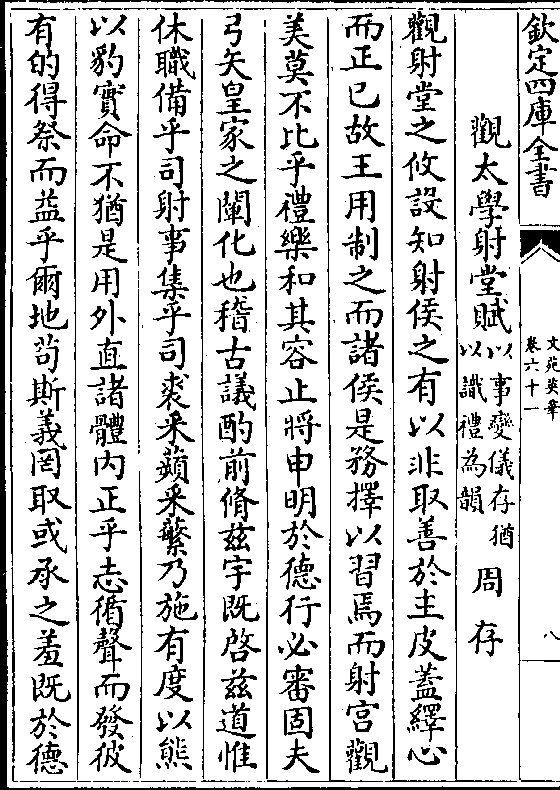 欽定四庫全書
文苑英華
卷六十一
八
觀太學射堂賦以事變儀存猶以識禮為韻　周存
觀射堂之攸設知射侯之有以非取善於主皮蓋繹心
而正已故王用制之而諸侯是務擇以習焉而射宮觀
美莫不比乎禮樂和其容止將申明於德行必審固夫
弓矢皇家之闡化也稽古議酌前脩兹宇既啓兹道惟
休職備乎司射事集乎司裘釆蘋釆蘩乃施有度以熊
以豹實命不猶是用外直諸體内正乎志循聲而發彼
有的得祭而益乎爾地苟斯義罔取或承之羞既於德